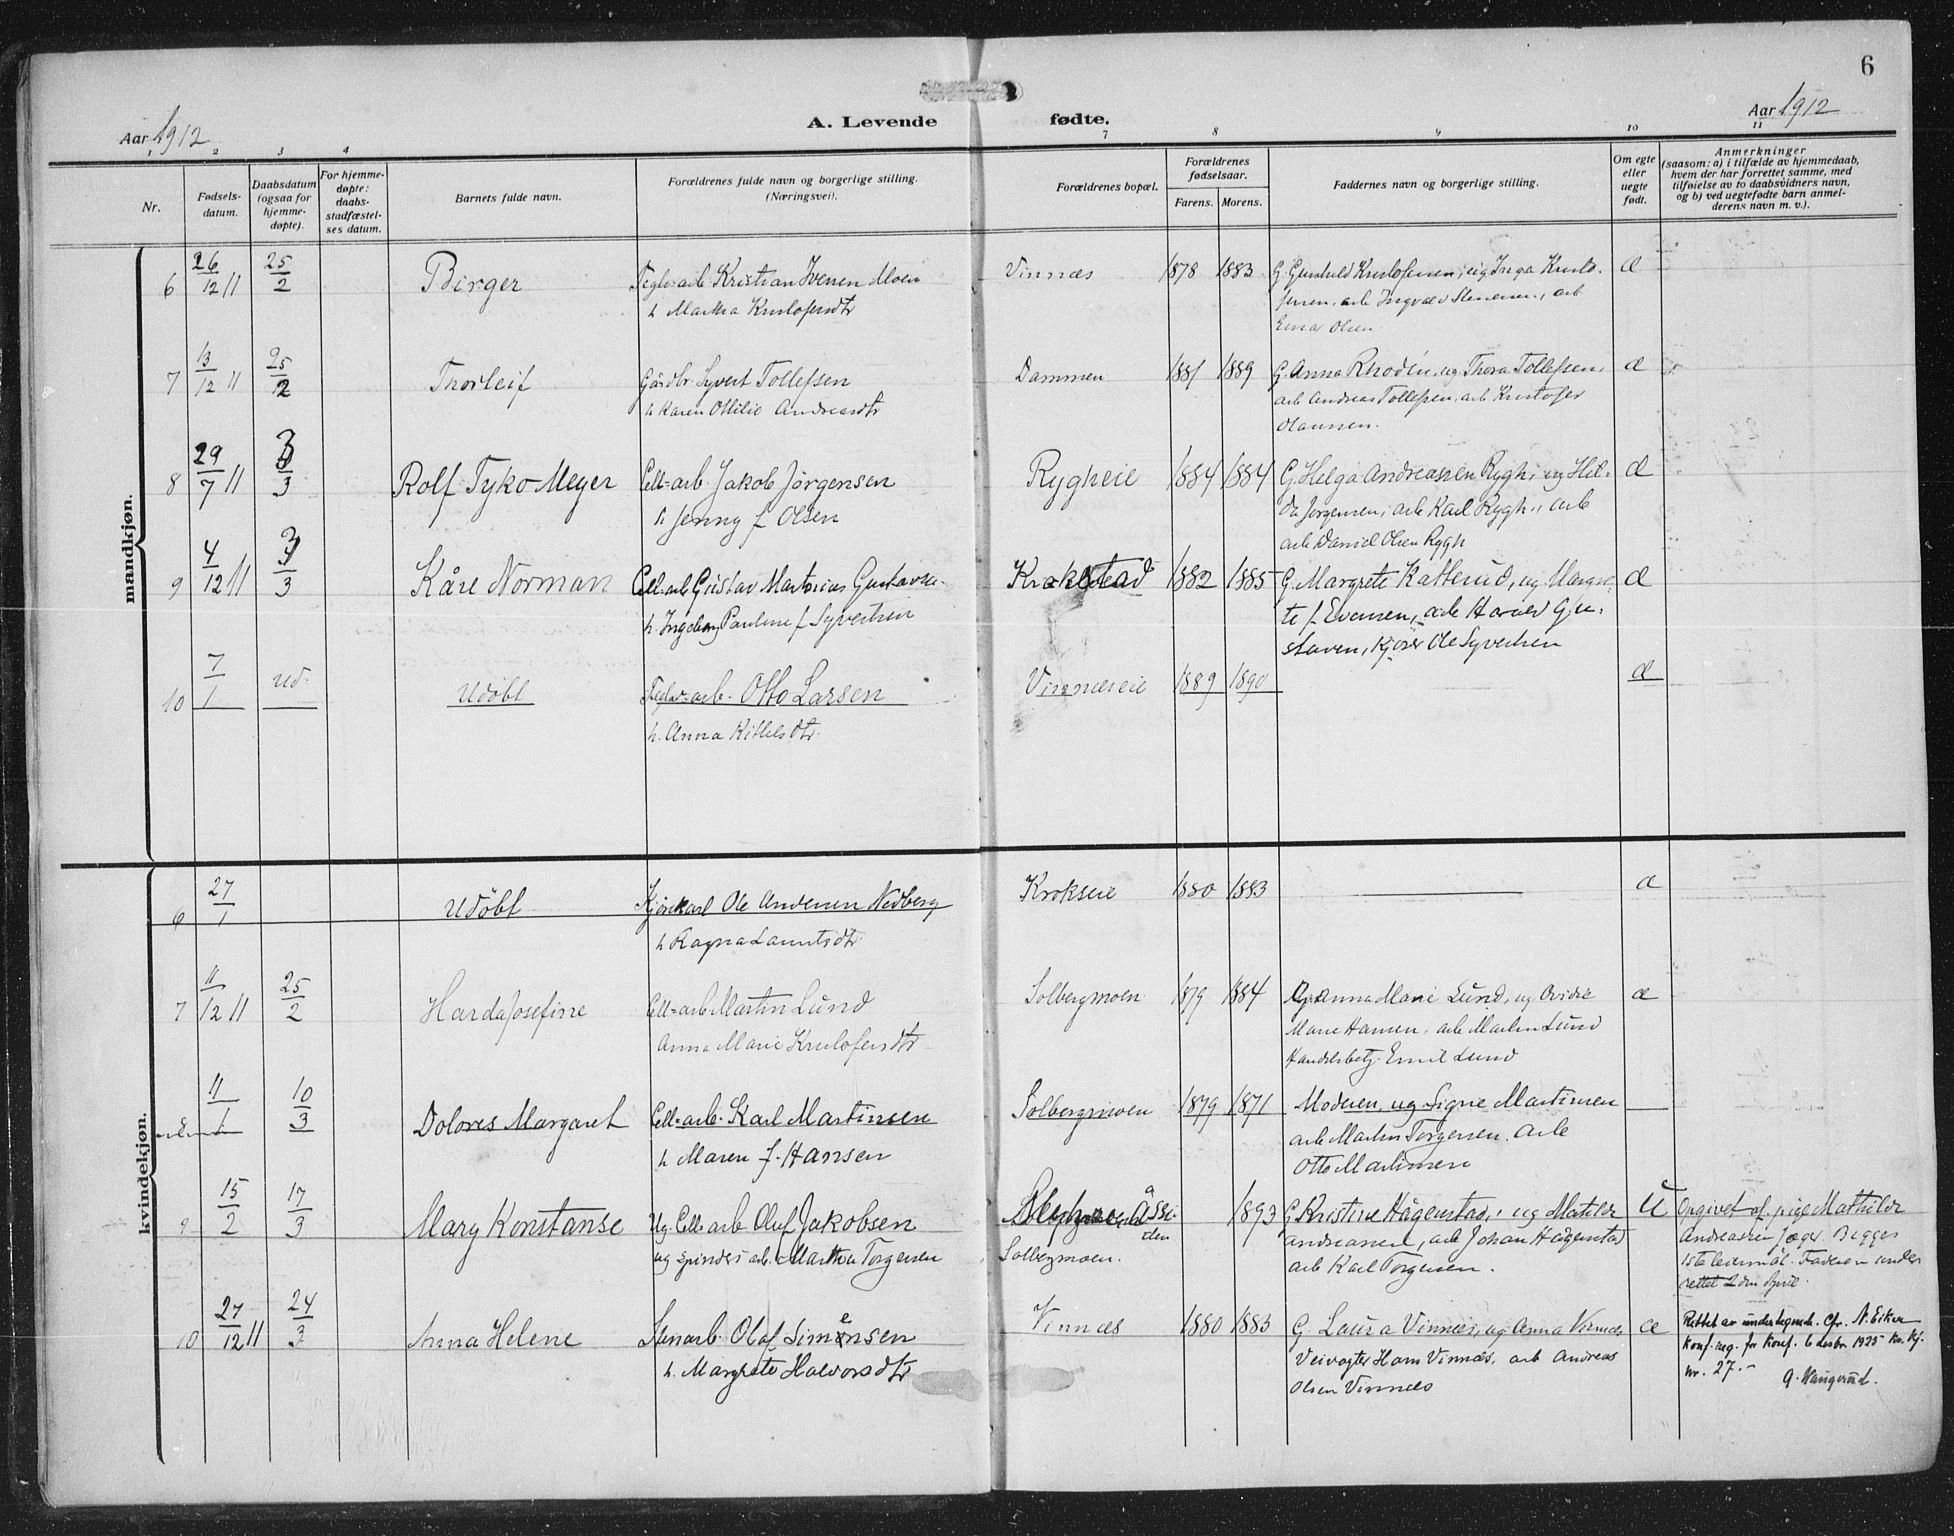 6
Aar 1912
A. Levende fødte.
Aar 1912
1 2 3 4 7 8 9 10 11
Nr.
Fødsels-
datum.
Daabsdatum
(ogsaa for
hjemme-
døpte).
For hjemme-
døpte:
daabs-
stadfæstel-
ses datum.
Barnets fulde navn.
Forældrenes fulde navn og borgerlige stilling.
(Næringsvei).
Forældrenes bopæl.
Forældrenes
fødselsaar.
Farens. Morens.
Faddernes navn og borgerlige stilling.
Om egte
eller
uegte
født.
Anmerkninger
(saasom: a) i tilfælde av hjemmedaab,
hvem der har forrettet samme, med
tilføielse av to daabsvidners navn,
og b) ved uegtefødte barn anmel-
derens navn m. v.).
mandkjøn.
6 26/12 11 25/2 Birger Teglv=arb Kristian Iversen Moen Vinnæs 1878 1883
h. Martha Kristofersdtr
Einar Olsen
7 13/12 11 25/2 Thorleif Gårdbr Syvert Tollefsen Dammen 1881 1889 G. Anna Rhodin, ug Thora Tollefsen,
h Karen Ottilie Andreasdtr arb Andreas Tollefsen, arb Kristofer
Olaussen.
8 29/7 11 3/3 Rolf Tyko Meyer Cell=arb. Jakob Jørgensen Rygheie 1884 1884 G. Helga Andreassen Rygh, ug Hil-
h Jenny f Olsen da Jørgensen, arb Karl Rygh, arb
arb Daniel Olsen Rygh
9 4/12 11 3/3 Kåre Norman Cell=arb Gustav Martinius Gustavsen Krokstad 1882 1885 G. Margrete Katterud, ug Margre-
h. Ingeborg Pauline f Syvertsen te f. Evensen, arb Harald Gu-
stavsen, kjører Ole Syvertsen
10 7/1 ud. Udøbt Teglv=arb. Otto Larsen Vinnæseie 1889 1890
h. Anna Kittelsdtr.
kvindekjøn.
6 27/1 Udøbt Kjørekarl Ole Andersen Nedberg Krokseie 1880 1883
h Ragna Lauritsdtr
7 11/12 11 25/2 Harda Josefine Cell=arb Martin Lund Solbergmoen 1879 1884 G. Anna Marie Lund, ug Ovidie
Anna Marie Kristofersdtr Marie Hansen, arb Martin Lund
Handelsbetj. Emil Lund
8 11/1 10/3 Dolores Margaret Cell=arb. Karl Martinsen Solbergmoen 1879 1871 Moderen, ug Signe Martinsen
h Maren f. Hansen arb Martin Torgersen, arb
Otto Martinsen
9 15/2 17/3 Mary Konstanse Ug. Cell=arb Oluf Jakobsen 1893 G. Kristine Hågenstad, ug Matilde U Opgivet af pige Mathilde
ug spinderiarb. Marthea Torgersen Solbergmoen. Andreassen, arb Johan Hågenstad Andreassen Jæger. Begges
arb Karl Torgersen. 1ste leiermål. Faderen under
rettet 2den April.
10 27/12 11 24/3 Anna Helene Stenarb. Olaf Simensen Vinnæs 1880 1883 G. Laura Vinnæs, ug Anna Vinnæs
h. Margrete Halvorsdtr Veivogter Hans Vinnæs, arb Andreas
Olsen Vinnæs
Rettet av undertegnede. Cfr. N. Eiker
konf. reg. for konf. 6 desbr. 1925 kr. kj.
nr. 27.-
A. Haugerud.